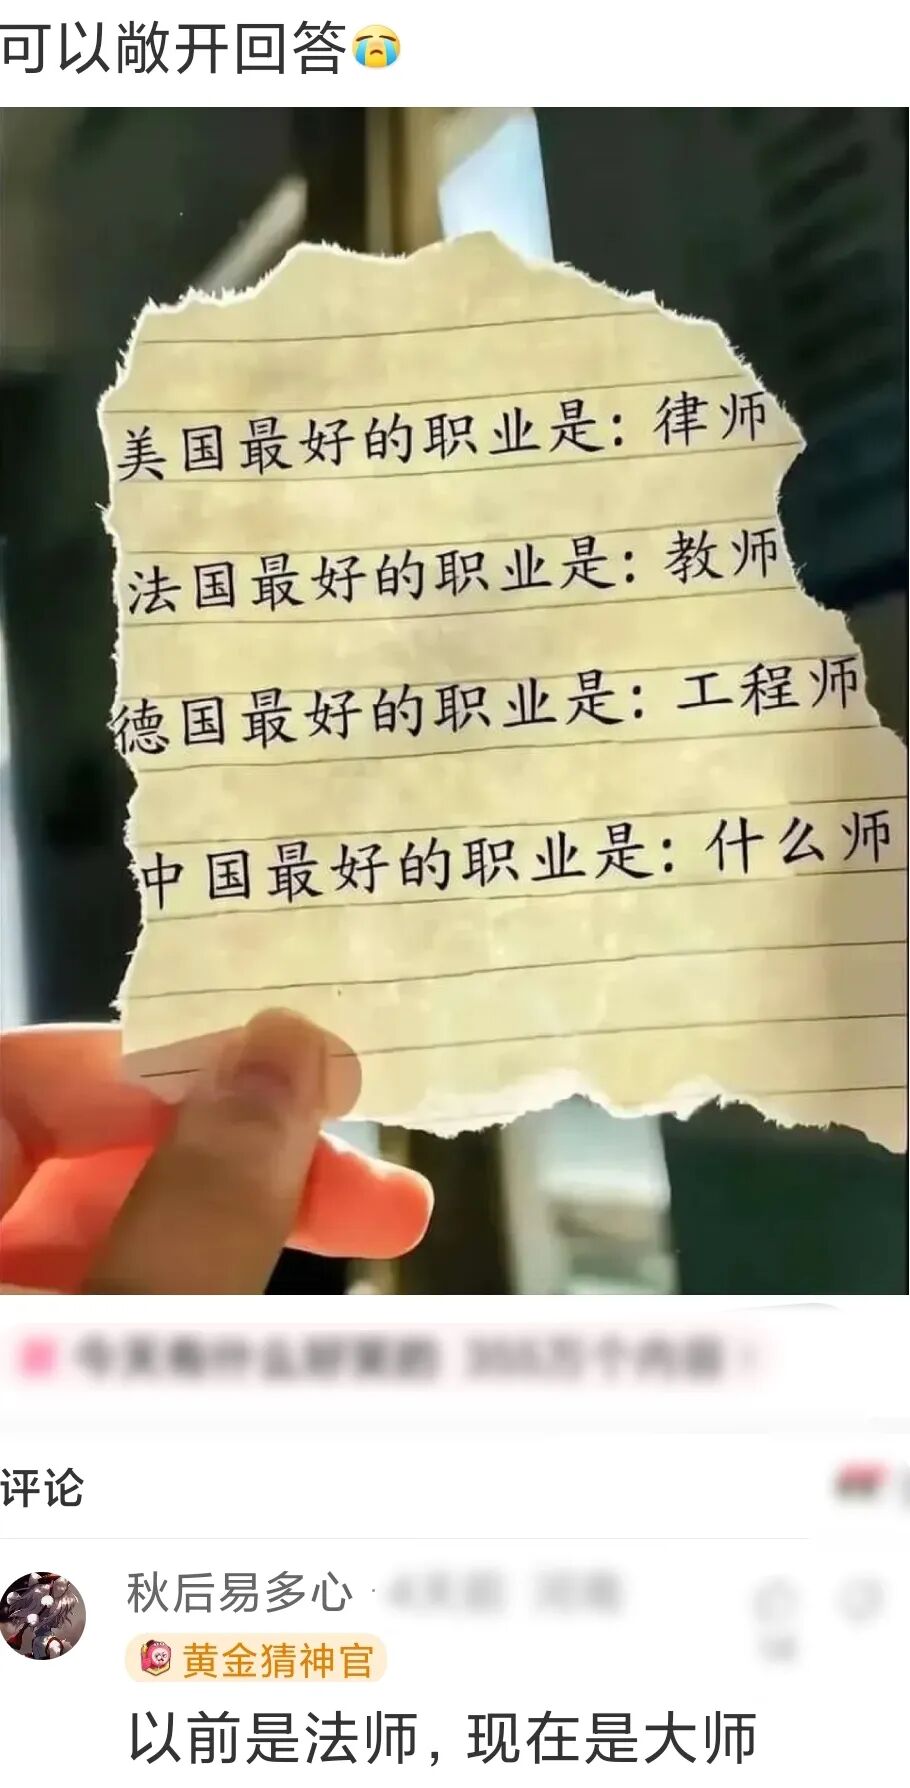 可以敞开回答😭
美国最好的职业是：律师
法国最好的职业是：教师
德国最好的职业是：工程师
中国最好的职业是：什么师
评论
秋后易多心 ·
黄金猜神官
以前是法师，现在是大师